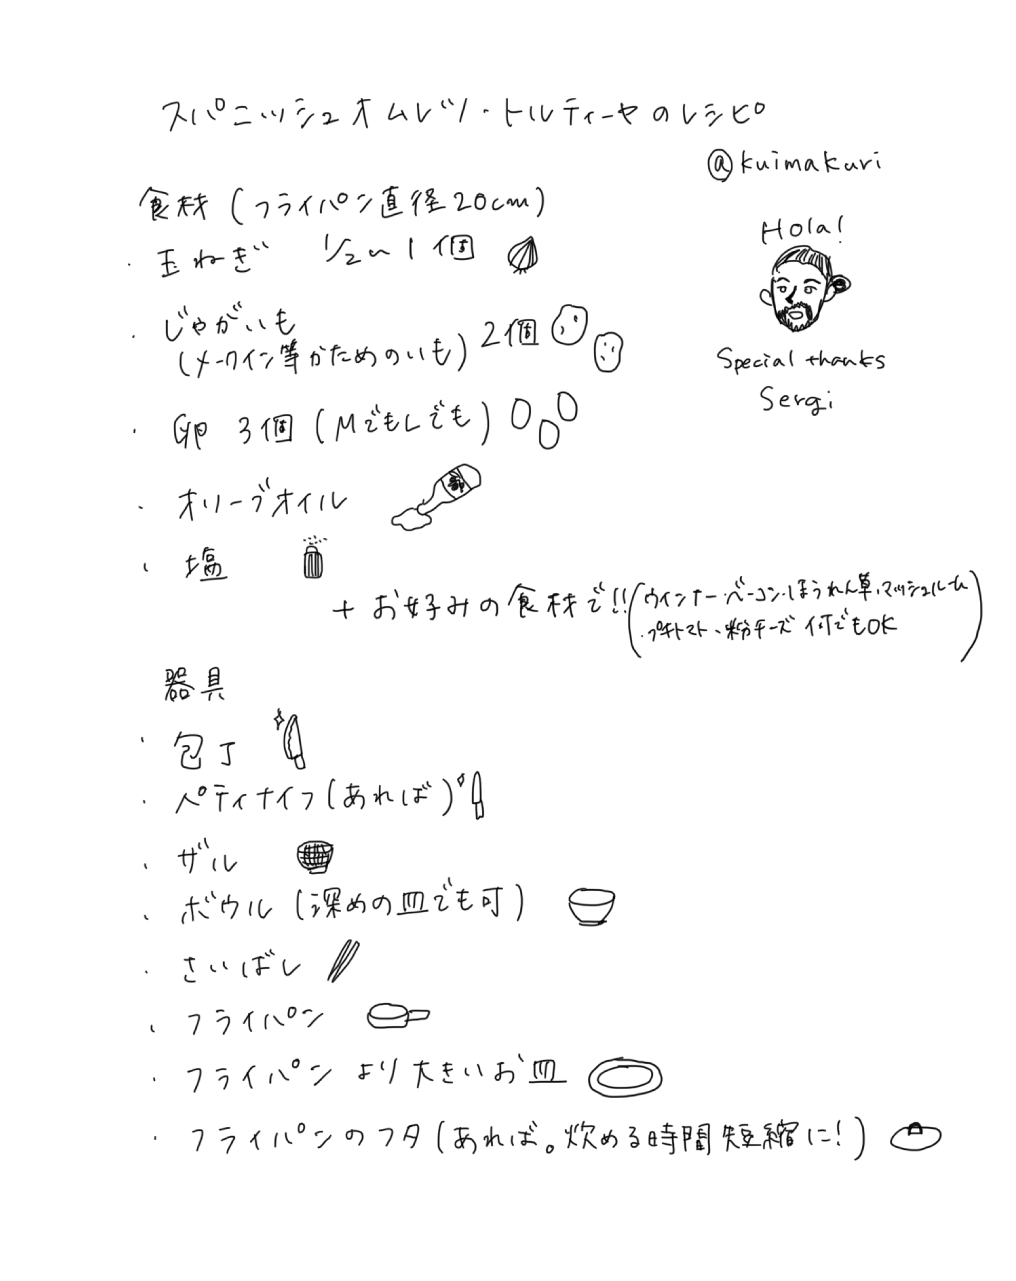 スパニッシュオムレツ・トルティーヤのレシピ
@kuimakuri
食材(フライパン直径20cm)
・玉ねぎ 1/2〜1個
Hola!
・じゃがいも
(メークイン等かためのいも) 2個
Special thanks
Sergi
・卵 3個(MでもLでも)
・オリーブオイル
・塩
+お好みの食材で!!(ウインナー・ベーコン・ほうれん草、マッシュルーム
・プチトマト、粉チーズ 何でもOK)
器具
・包丁
・ペティナイフ(あれば)
・ザル
・ボウル(深めの皿でも可)
・さいばし
・フライパン
・フライパンより大きいお皿
・フライパンのフタ(あれば。炊める時間短縮に!)